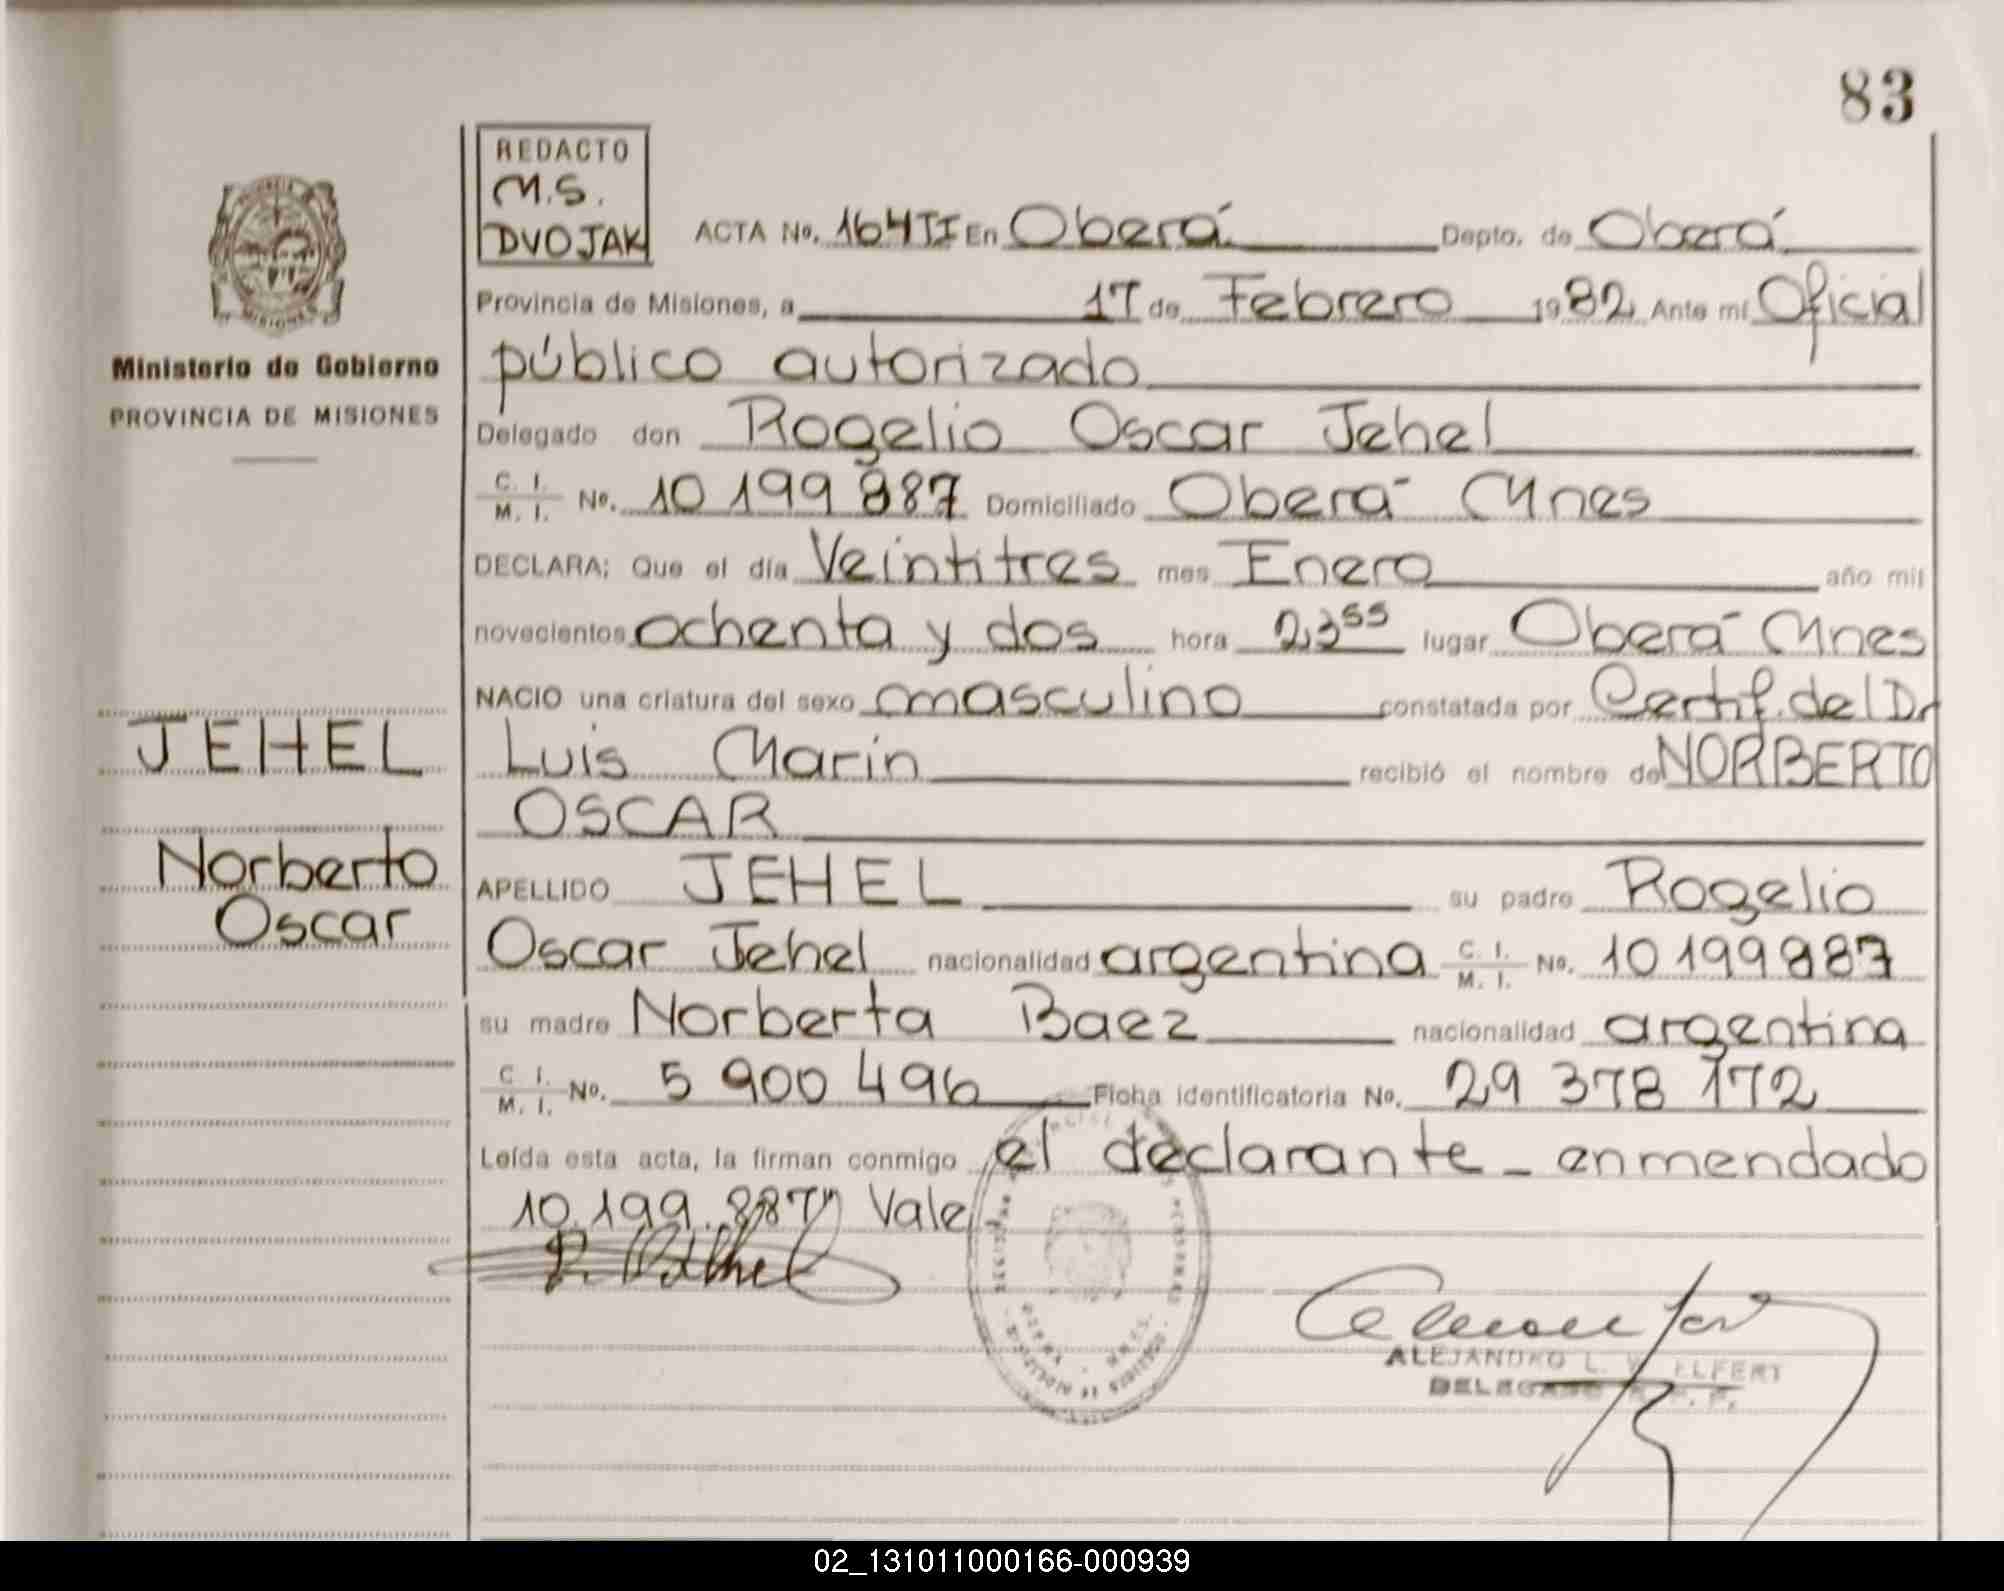 83
REDACTO
M.S.
DVOJAK
ACTA No. 164TI En Oberá Depto. de Oberá
Provincia de Misiones, a 17 de Febrero 1982 Ante mí Oficial
Ministerio de Gobierno
PROVINCIA DE MISIONES
público autorizado
Delegado don Rogelio Oscar Jehel
C. I.
M. I. No. 10 199 887 Domiciliado Oberá Mnes
DECLARA; Que el día Veintitres mes Enero año mil
novecientos ochenta y dos hora 23 55 lugar Oberá Mnes
NACIO una criatura del sexo masculino constatada por Certif. del Dr
Luis Marin recibió el nombre de NORBERTO
OSCAR
JEHEL
Norberto
Oscar
APELLIDO JEHEL su padre Rogelio
Oscar Jehel nacionalidad argentina C. I. M. I. No. 10 199 887
su madre Norberta Baez nacionalidad argentina
C. I.
M. I. No. 5 900 496 Ficha identificatoria No. 29 378 172
Leída esta acta, la firman conmigo el declarante _ enmendado
10.199.887 Vale
ALEJANDRO L.
DELEGADO
02_131011000166-000939